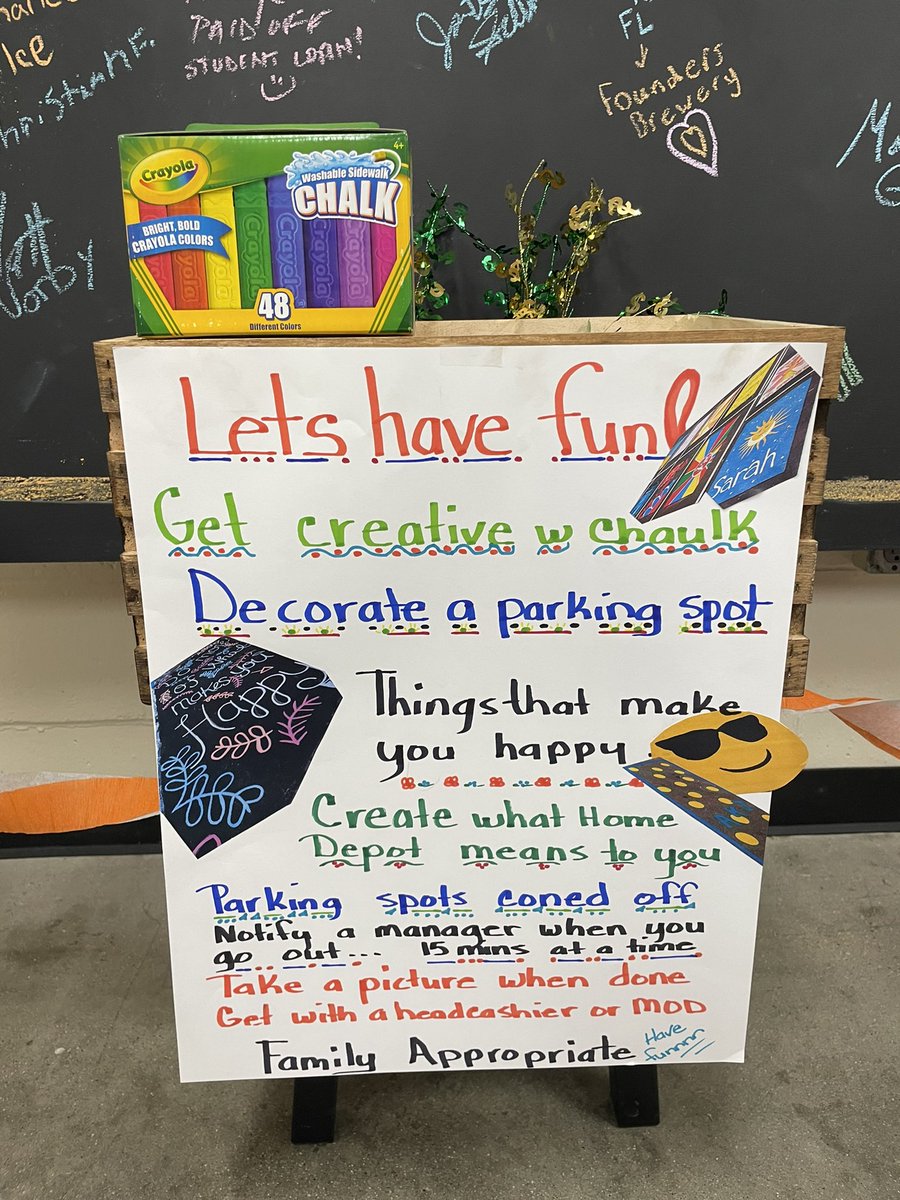 ke
christian F.
PAID OFF
STUDENT LOAN!
FL
Founders
Brewery
Ma
Worby
Crayola
4+
Washable Sidewalk
CHALK
BRIGHT, BOLD
CRAYOLA COLORS
Crayola
48
Different Colors
Lets have fun!
Sarah
Get creative w chaulk
Decorate a parking spot
makes you
Happy
Things that make
you happy.
Create what Home
Depot means to you
Parking spots coned off
Notify a manager when you
go out... 15 mins at a time
Take a picture when done
Get with a headcashier or MOD
Family Appropriate
Have
funnnr